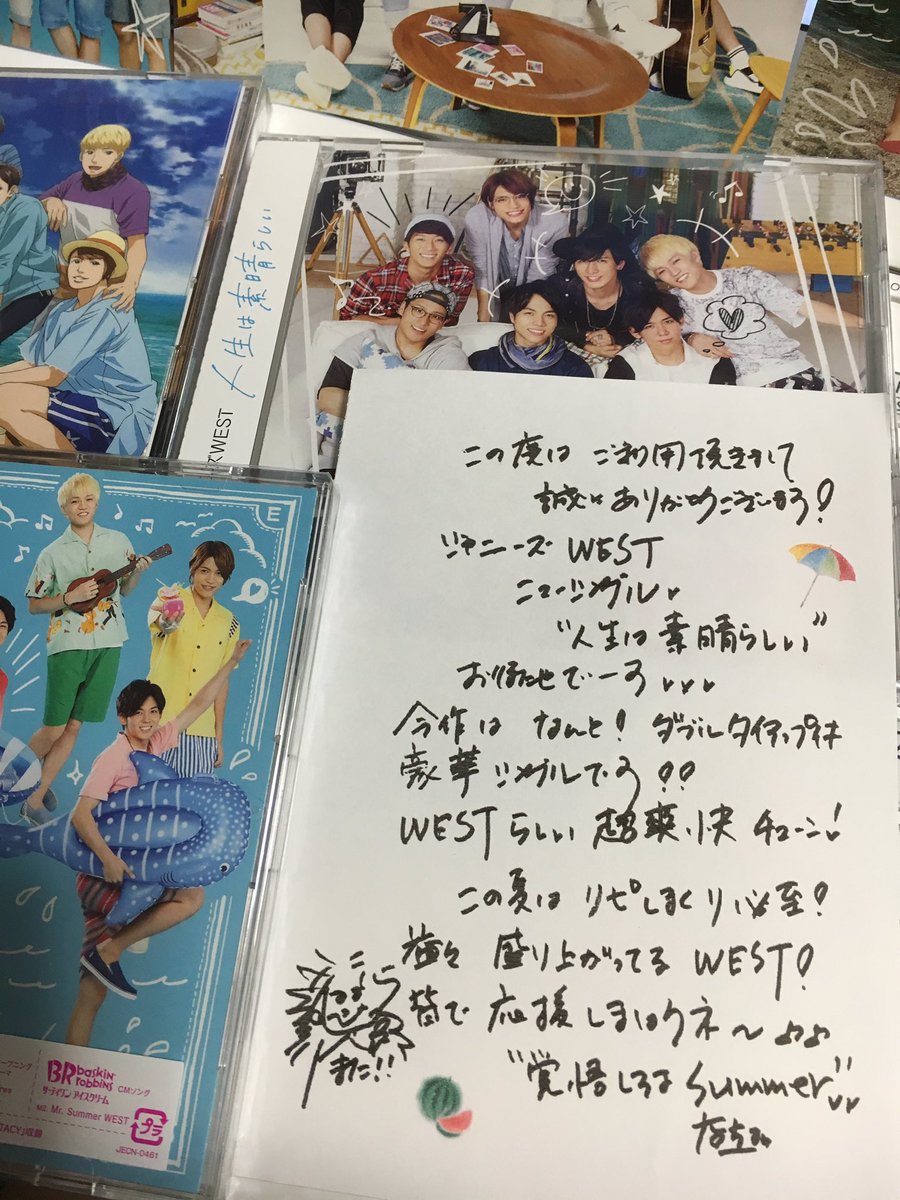 人生は素晴らしい
WEST
この度は ご利用頂きまして
誠にありがとうございます!
ジャニーズ WEST
ニューシングル
"人生は素晴らしい"
お待たせでーす
今作は なんと! ダブルタイアップ付き
豪華シングルです!!
WESTらしい 超爽快チューン!
この夏は リピしまくり必至!
益々 盛り上がってる WEST!
皆で 応援しまし ネ〜♪♪
また!!
"覚悟しろよ Summer"
E
BR baskin robbins CMソング
サーティワン アイスクリーム
M2. Mr. Summer WEST
TACY」収録
プラ
JECN-0461